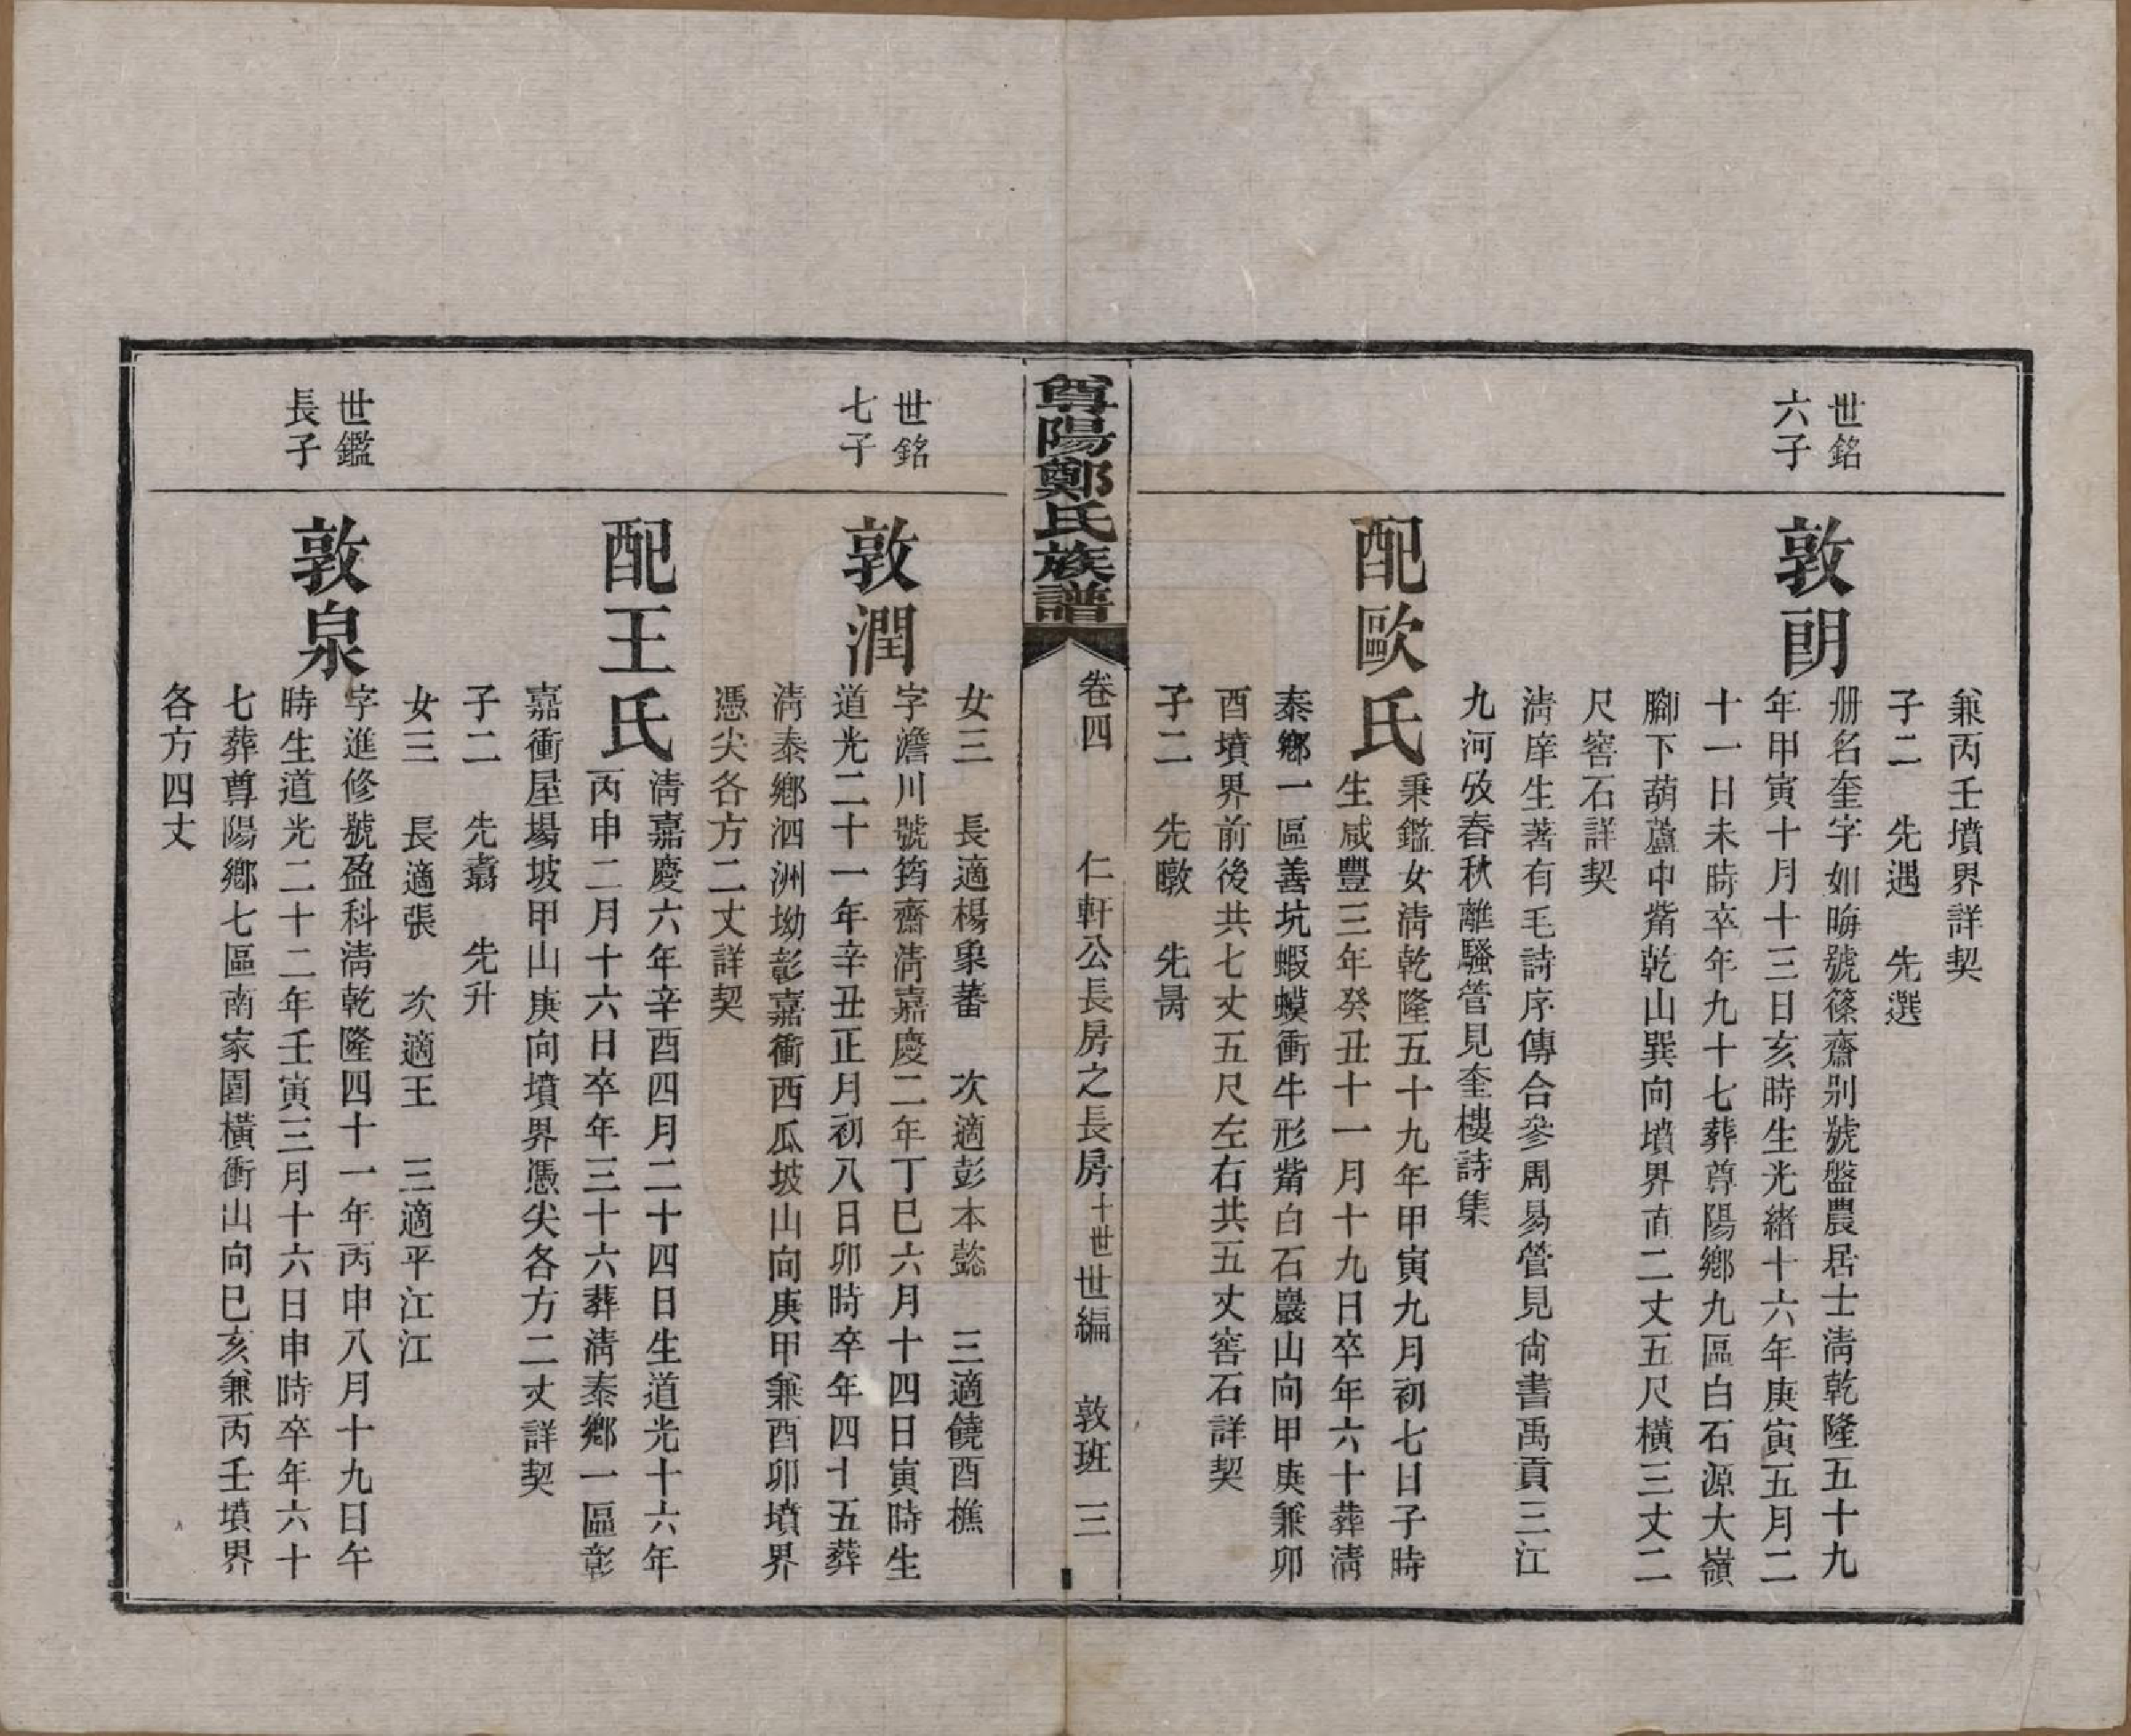 兼丙壬墳界詳契
子二　先遇　先選
世銘
六子
敦朗
册名奎字如晦號篠齋别號盤農居士淸乾隆五十九
年甲寅十月十三日亥時生光緒十六年庚寅五月二
十一日未時卒年九十七葬尊陽鄉九區白石源大嶺
腳下葫蘆中觜乾山巽向墳界直二丈五尺橫三丈二
尺窖石詳契
淸庠生著有毛詩序傳合參周易管見尙書禹貢三江
九河攷春秋離騷管見奎樓詩集
配歐氏
秉鑑女淸乾隆五十九年甲寅九月初七日子時
生咸豐三年癸丑十一月十九日卒年六十葬淸
泰鄉一區善坑蝦蟆衝牛形觜白石巖山向甲庚兼卯
酉墳界前後共七丈五尺左右共五丈窖石詳契
子二　先暾　先昺
尊陽鄭氏族譜
卷四　仁軒公長房之長房十世世編　敦班　三
女三　長適楊象蕃　次適彭本懿　三適饒酉樵
世銘
七子
敦潤
字澹川號筠齋淸嘉慶二年丁巳六月十四日寅時生
道光二十一年辛丑正月初八日卯時卒年四十五葬
淸泰鄉泗洲坳彰嘉衝西瓜坡山向庚甲兼酉卯墳界
憑尖各方二丈詳契
配王氏
淸嘉慶六年辛酉四月二十四日生道光十六年
丙申二月十六日卒年三十六葬淸泰鄉一區彰
嘉衝屋場坡甲山庚向墳界憑尖各方二丈詳契
子二　先翥　先升
女三　長適張　次適王　三適平江江
世鑑
長子
敦泉
字進修號盈科淸乾隆四十一年丙申八月十九日午
時生道光二十二年壬寅三月十六日申時卒年六十
七葬尊陽鄉七區南家園橫衝山向巳亥兼丙壬墳界
各方四丈